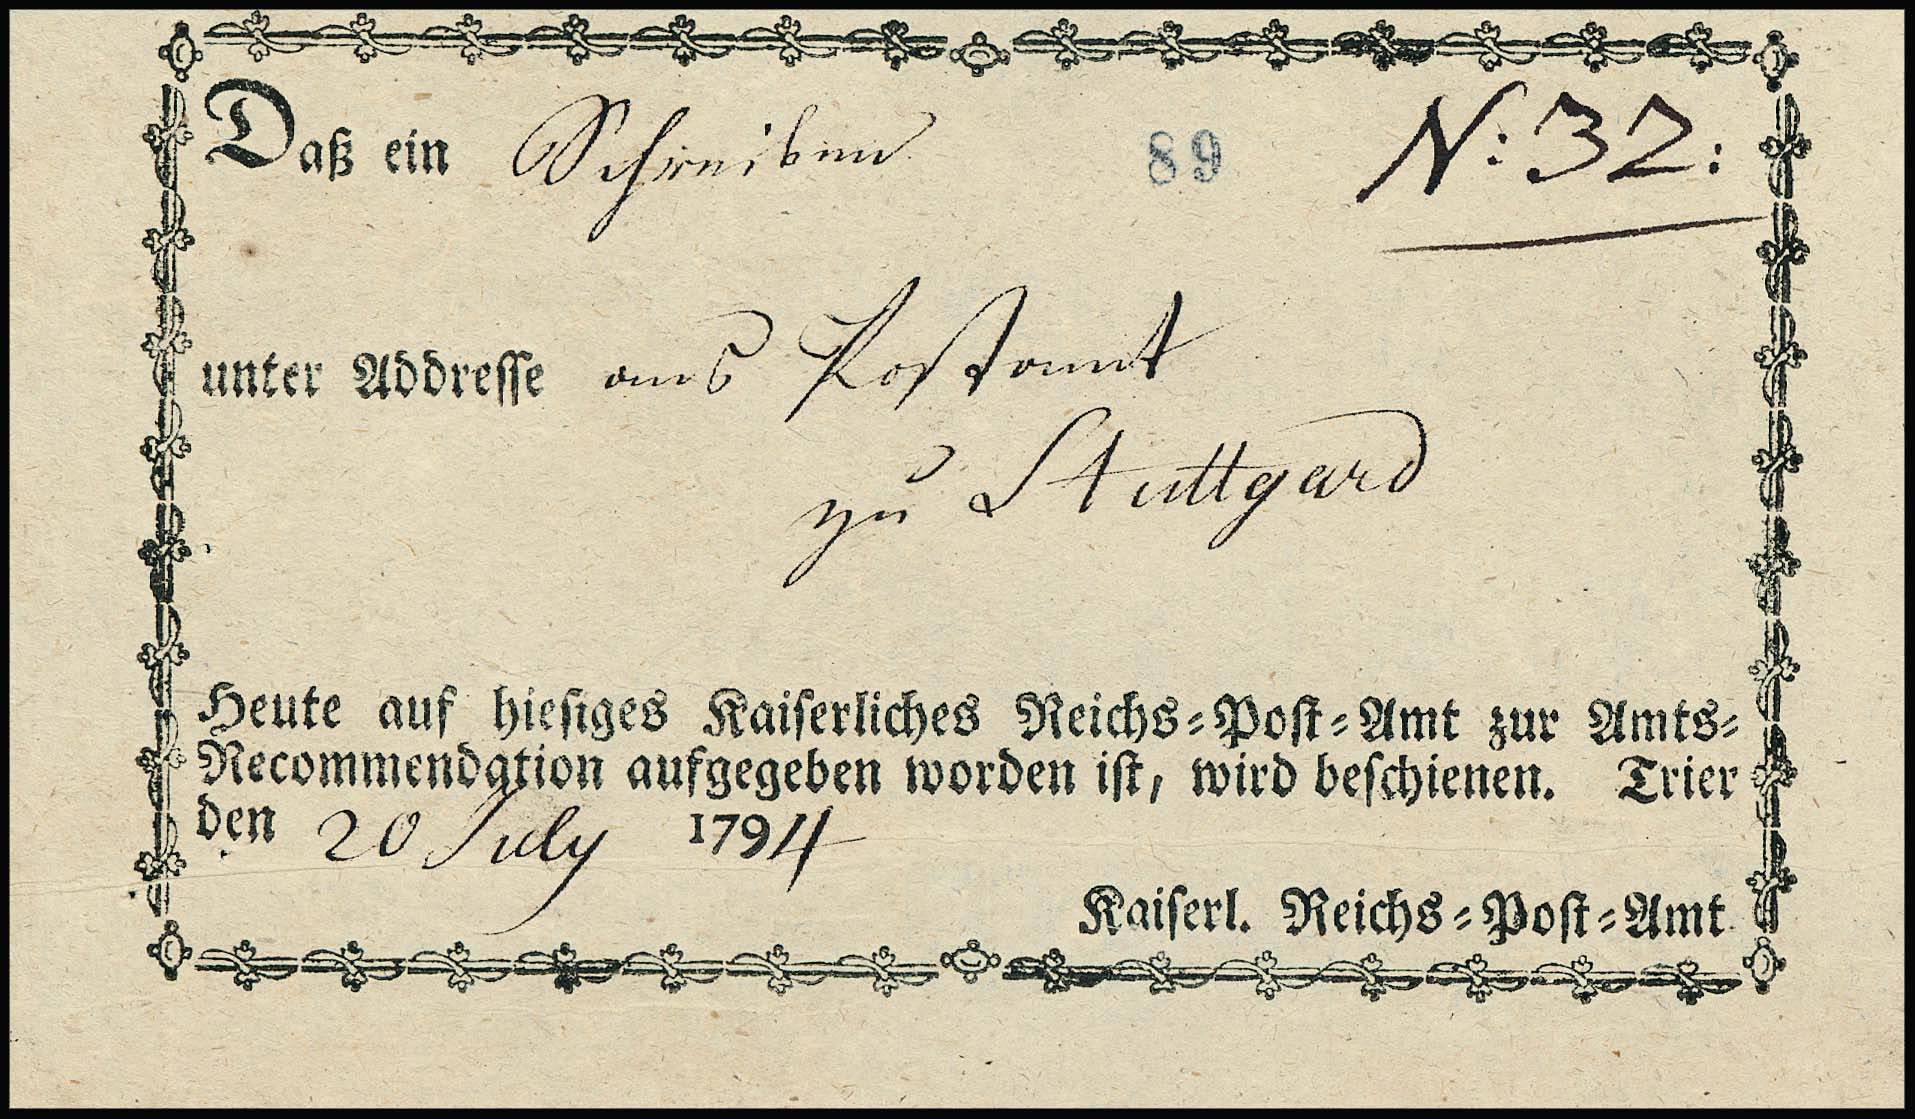 Daß ein Schreiben 89 N: 32:
unter Addresse ans Postamt
zu Stuttgard
Heute auf hiesiges Kaiserliches Reichs-Post-Amt zur Amts-
Recommendation aufgegeben worden ist, wird beschienen. Trier
den 20 July 1794
Kaiserl. Reichs-Post-Amt